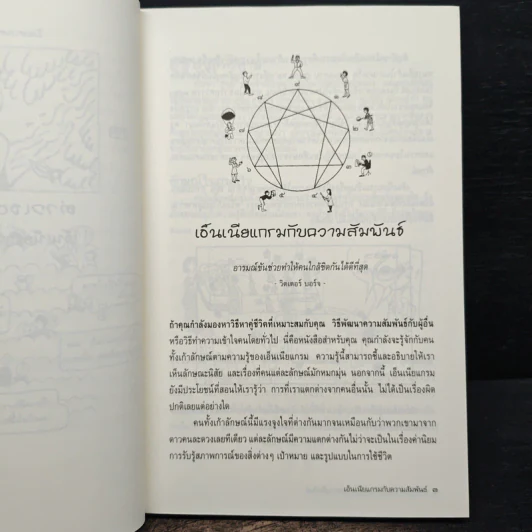 เอ็นเนียแกรมกับความสัมพันธ์
อารมณ์ขันช่วยทำให้คนใกล้ชิดกันได้ดีที่สุด
- วิคเตอร์ บอร์จ -
ถ้าคุณกำลังมองหาวิธีหาคู่ชีวิตที่เหมาะสมกับคุณ วิธีพัฒนาความสัมพันธ์กับผู้อื่น
หรือวิธีทำความเข้าใจคนโดยทั่วไป นี่คือหนังสือสำหรับคุณ คุณกำลังจะรู้จักกับคน
ทั้งเก้าลักษณ์ตามความรู้ของเอ็นเนียแกรม ความรู้นี้สามารถชี้และอธิบายให้เรา
เห็นลักษณะนิสัย และเรื่องที่คนแต่ละลักษณ์มักหมกมุ่น นอกจากนี้ เอ็นเนียแกรม
ยังมีประโยชน์ที่สอนให้เรารู้ว่า การที่เราแตกต่างจากคนอื่นนั้น ไม่ได้เป็นเรื่องผิด
ปกติเลยแต่อย่างใด
คนทั้งเก้าลักษณ์นี้มีแรงจูงใจที่ต่างกันมากจนเหมือนกับว่าพวกเขามาจาก
ดาวคนละดวงเลยทีเดียว แต่ละลักษณ์มีความแตกต่างกันไม่ว่าจะเป็นในเรื่องค่านิยม
การรับรู้สภาพการณ์ของสิ่งต่างๆ เป้าหมาย และรูปแบบในการใช้ชีวิต
เอ็นเนียแกรมกับความสัมพันธ์ ๓